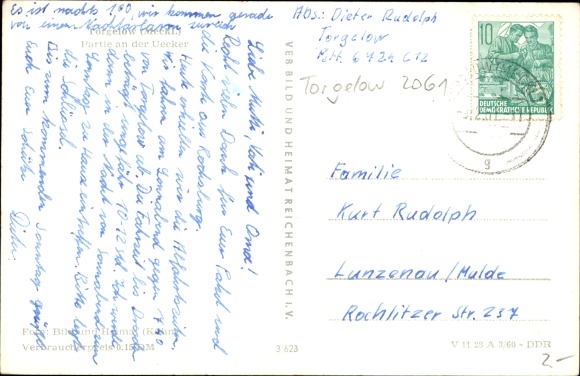 Es ist nachts 1.00, wir kommen gerade
von einem Nachtalarm zurück
Torgelow (Ueckm.)
Partie an der Uecker
Liebe Mutti, Vati und Oma!
Recht vielen Dank für Euer Paket und
die Karte aus Rochsburg.
Heute erhielten wir die Abfahrtszeiten.
Wir fahren am Sonnabend gegen
von Torgelow ab. Die Fahrzeit bis Dresden
beträgt ungefähr 10-12 Std. Ich werde
dann in der Nacht von Sonnabend zum
Sonntag zu Hause eintreffen. Bitte legt
die Schlüssel
Bis zum kommenden Sonntag grüßt
Euch Euer
Dieter
Foto: Bild und Heimat
Verbraucherpreis 0.15 DM
3 623
VEB BILD UND HEIMAT REICHENBACH I. V.
Abs.: Dieter Rudolph
Torgelow
P.H. 6724 C12
Torgelow 2061
10
DEUTSCHE
DEMOKRATISCHE REPUBLIK
g
Familie
Kurt Rudolph
Lunzenau/Mulde
Rochlitzer Str. 237
V 11 28 A 3/60 - DDR
2,-